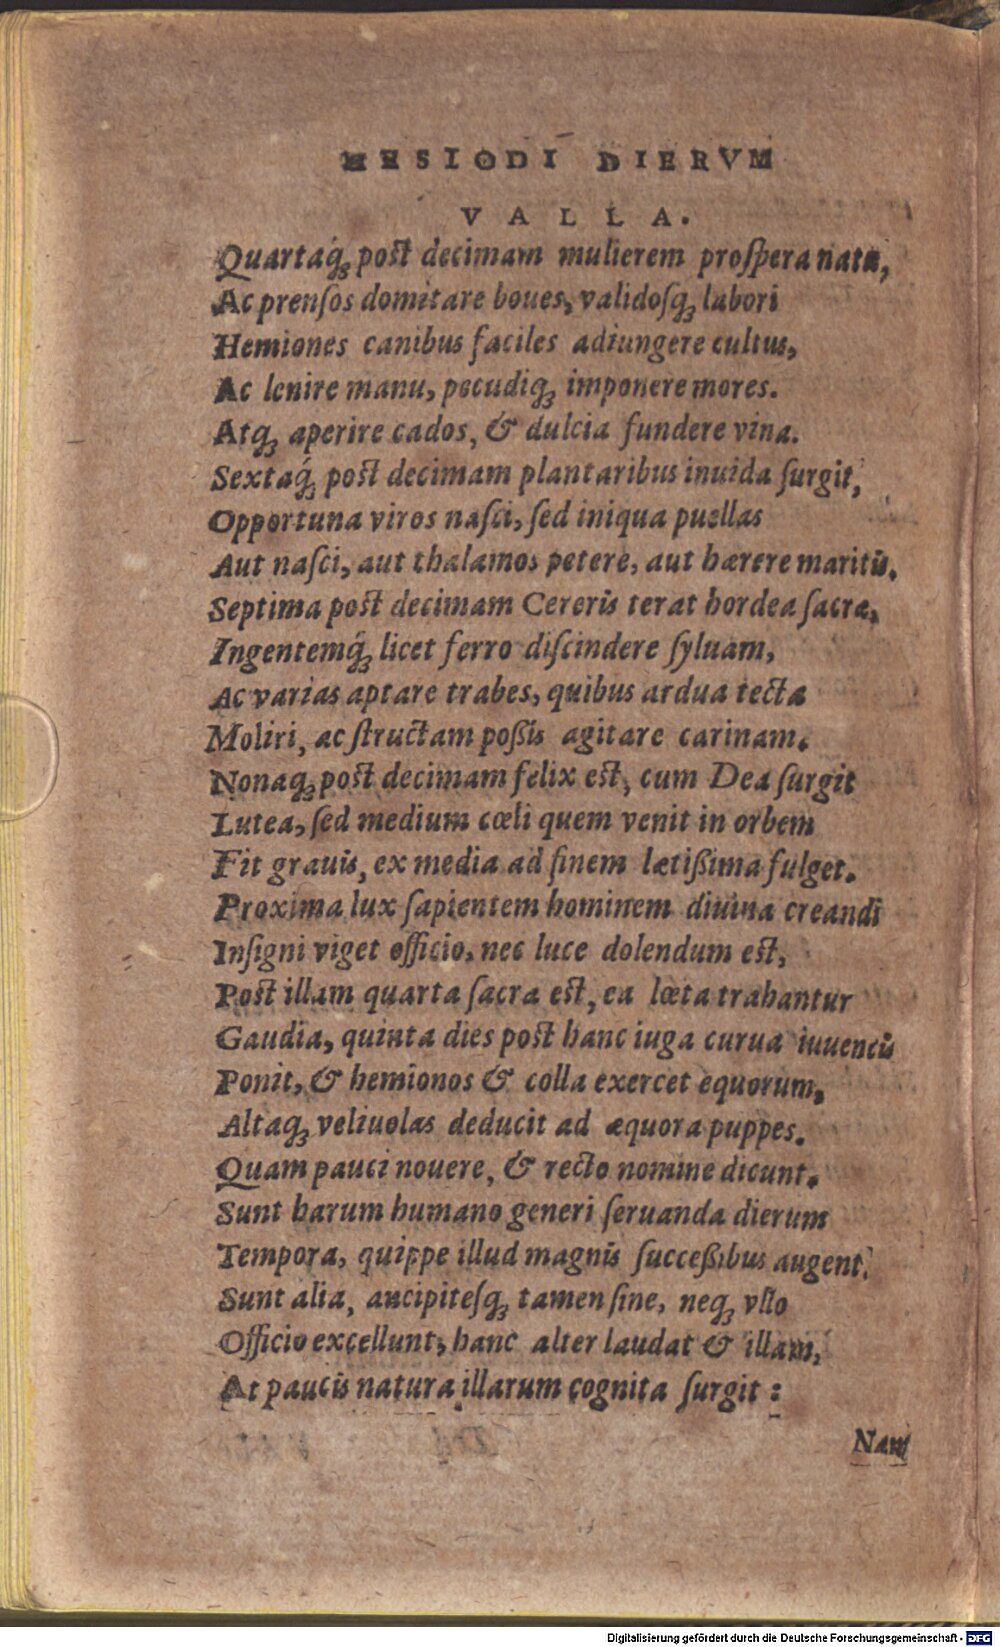 HESIODI DIERVM
VALLA.
Quartaq́ꝫ post decimam mulierem prospera nata,
Ac prensos domitare boues, validosqꝫ labori
Hemiones canibus faciles adiungere cultus,
Ac lenire manu, pecudiqꝫ imponere mores.
Atqꝫ aperire cados, & dulcia fundere vina.
Sextaq́ꝫ post decimam plantaribus inuida surgit,
Opportuna viros nasci, sed iniqua puellas
Aut nasci, aut thalamos petere, aut hærere maritũ.
Septima post decimam Cereris terat hordea sacra,
Ingentemq́ꝫ licet ferro discindere syluam,
Ac varias aptare trabes, quibus ardua tecta
Moliri, ac structam poßis agitare carinam.
Nonaqꝫ post decimam felix est, cum Dea surgit
Lutea, sed medium cœli quem venit in orbem
Fit grauis, ex media ad finem lætißima fulget.
Proxima lux sapientem hominem diuina creandi
Insigni viget officio, nec luce dolendum est,
Post illam quarta sacra est, ea lœta trahantur
Gaudia, quinta dies post hanc iuga curua iuuencũ
Ponit, & hemionos & colla exercet equorum,
Altaqꝫ veliuolas deducit ad æquora puppes.
Quam pauci nouere, & recto nomine dicunt.
Sunt harum humano generi seruanda dierum
Tempora, quippe illud magnis succeßibus augent.
Sunt alia, ancipitesqꝫ tamen sine, neqꝫ vllo
Officio excellunt, hanc alter laudat & illam,
At paucis natura illarum cognita surgit:
Nam
Digitalisierung gefördert durch die Deutsche Forschungsgemeinschaft - DFG